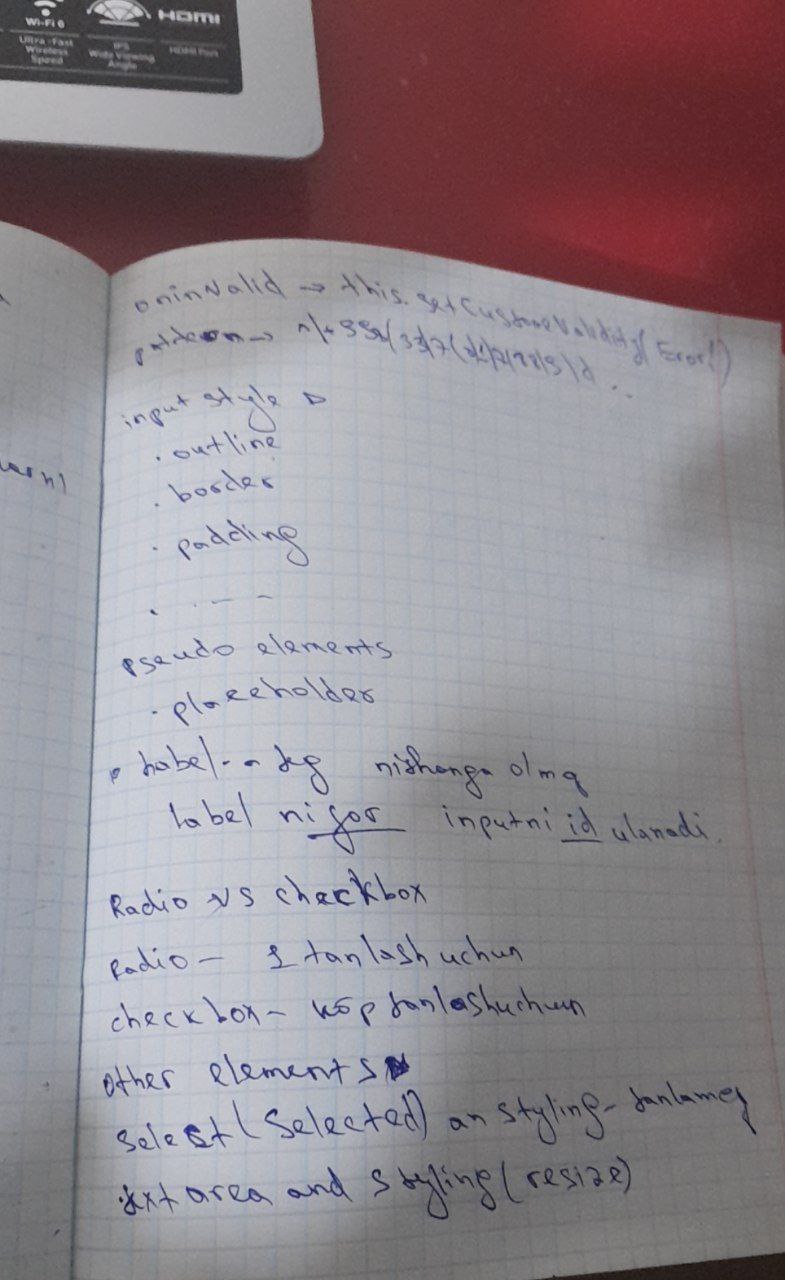 Wi-Fi 6
Ultra-Fast
Wireless
Speed
IPS
Wide Viewing
Angle
HDMI
HDMI Port
oninvalid → this.setCustomValidity(Error!)
pattern →
input style
. outline
. border
. padding
. - - -
pseudo elements
. placeholder
label nishonga olmq
label ni for inputni id ulanadi.
Radio vs checkbox
Radio - 1 tanlash uchun
checkbox - ko'p tanlash uchun
other elements
select (selected) an styling - tanlameq
textarea and styling (resize)